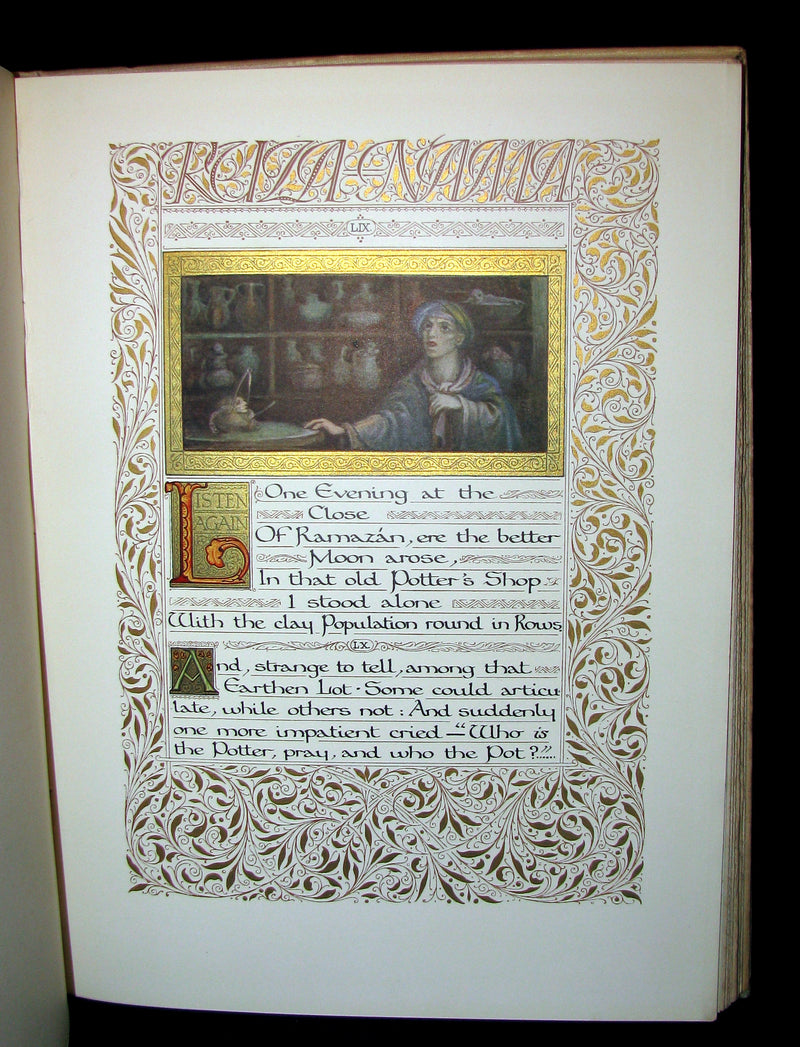 KUZA-NAMA
LIX
LISTEN AGAIN One Evening at the
Close
Of Ramazán, ere the better
Moon arose,
In that old Potter's Shop
I stood alone
With the clay Population round in Rows
LX
And, strange to tell, among that
Earthen Lot · Some could articu
late, while others not : And suddenly
one more impatient cried — “Who is
the Potter, pray, and who the Pot?”